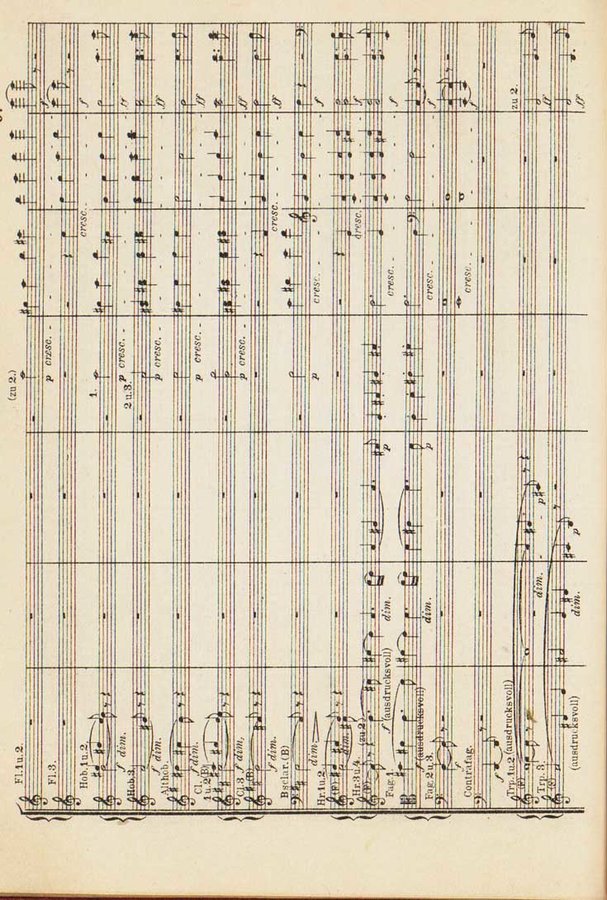 Fl.1u.2.
(zu 2.)
p cresc.
f
Fl.3.
cresc.
f
Hob.1u.2.
f dim.
1.
p cresc.
ff
Hob.3.
dim.
2 u.3.
p cresc.
ff
Althob.
f dim.
p cresc.
ff
Cl.
1 u.2(B)
f dim.
p cresc.
ff
Cl.3
(B)
f dim.
cresc.
ff
Bsclar.(B)
dim.
p
cresc.
f
Hr.1u.2
(F)
dim.
cresc.
f
Hr.3u.4.
(F)
(zu 2.)
f (ausdrucksvoll)
dim.
p
cresc.
f
Fag.1
f (ausdrucksvoll)
dim.
p
cresc.
f
Fag.2 u.3.
f
cresc.
f
Contrafag.
f
Trp.1u.2 (ausdrucksvoll)
(F)
dim.
p
zu 2.
ff
Trp. 3.
(F)
(ausdrucksvoll)
dim.
p
ff